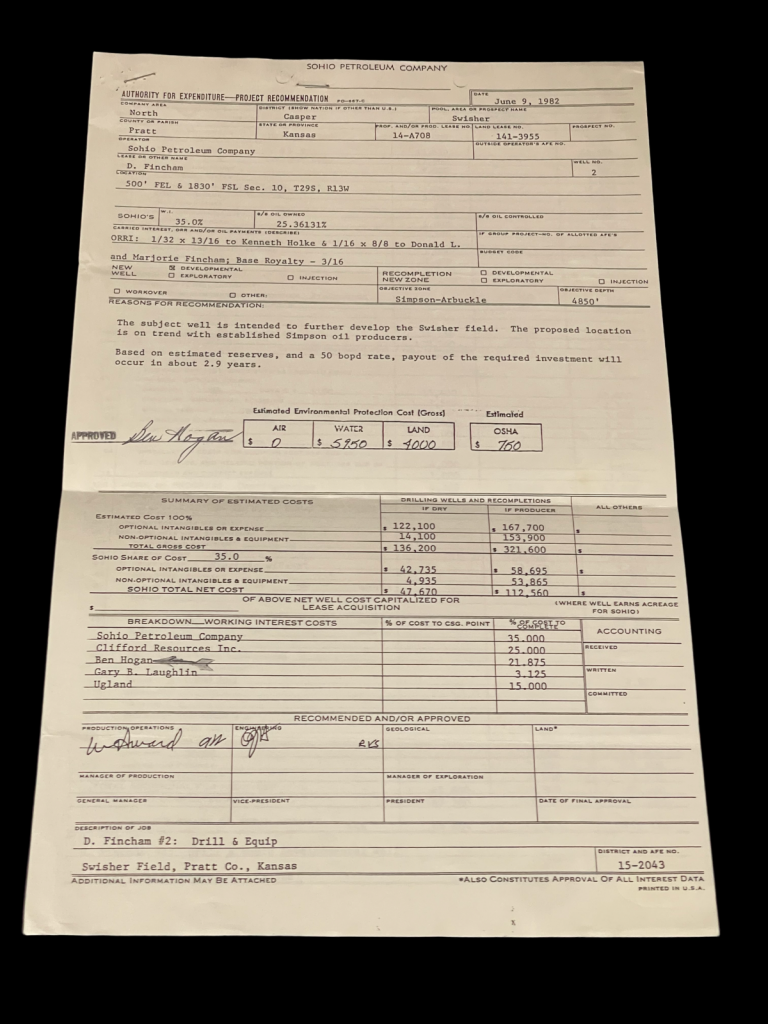 SOHIO PETROLEUM COMPANY
AUTHORITY FOR EXPENDITURE—PROJECT RECOMMENDATION
DATE
June 9, 1982
COMPANY AREA
North
DISTRICT (SHOW NATION IF OTHER THAN U.S.)
Casper
POOL, AREA OR PROSPECT NAME
Swisher
COUNTY OR PARISH
Pratt
STATE OR PROVINCE
Kansas
PROP. AND/OR PROD. LEASE NO.
14-A708
LAND LEASE NO.
141-3955
PROSPECT NO.
OPERATOR
Sohio Petroleum Company
OUTSIDE OPERATOR'S AFE NO.
LEASE OR OTHER NAME
D. Fincham
WELL NO.
2
LOCATION
500' FEL & 1830' FSL Sec. 10, T29S, R13W
SOHIO'S
W.I.
35.0%
8/8 OIL OWNED
25.36131%
8/8 OIL CONTROLLED
CARRIED INTEREST, ORR AND/OR OIL PAYMENTS (DESCRIBE)
ORRI: 1/32 x 13/16 to Kenneth Holke & 1/16 x 8/8 to Donald L.
and Marjorie Fincham; Base Royalty - 3/16
IF GROUP PROJECT—NO. OF ALLOTTED AFE'S
BUDGET CODE
NEW WELL
☒ DEVELOPMENTAL
☐ EXPLORATORY
☐ INJECTION
RECOMPLETION NEW ZONE
☐ DEVELOPMENTAL
☐ EXPLORATORY
☐ INJECTION
☐ WORKOVER
☐ OTHER:
OBJECTIVE ZONE
Simpson-Arbuckle
OBJECTIVE DEPTH
4850'
REASONS FOR RECOMMENDATION:
The subject well is intended to further develop the Swisher field. The proposed location
is on trend with established Simpson oil producers.
Based on estimated reserves, and a 50 bopd rate, payout of the required investment will
occur in about 2.9 years.
Estimated Environmental Protection Cost (Gross)
Estimated
APPROVED Ben Hogan
AIR
$ 0
WATER
$ 5950
LAND
$ 4000
OSHA
$ 750
SUMMARY OF ESTIMATED COSTS
DRILLING WELLS AND RECOMPLETIONS
IF DRY
IF PRODUCER
ALL OTHERS
ESTIMATED COST 100%
OPTIONAL INTANGIBLES OR EXPENSE $ 122,100 $ 167,700 $
NON-OPTIONAL INTANGIBLES & EQUIPMENT 14,100 153,900
TOTAL GROSS COST $ 136,200 $ 321,600 $
SOHIO SHARE OF COST 35.0 %
OPTIONAL INTANGIBLES OR EXPENSE $ 42,735 $ 58,695 $
NON-OPTIONAL INTANGIBLES & EQUIPMENT 4,935 53,865
SOHIO TOTAL NET COST $ 47,670 $ 112,560 $
$ OF ABOVE NET WELL COST CAPITALIZED FOR LEASE ACQUISITION (WHERE WELL EARNS ACREAGE FOR SOHIO)
BREAKDOWN—WORKING INTEREST COSTS
% OF COST TO CSG. POINT
% OF COST TO COMPLETE
ACCOUNTING
Sohio Petroleum Company 35.000
Clifford Resources Inc. 25.000
RECEIVED
Ben Hogan 21.875
Gary B. Laughlin 3.125
WRITTEN
Ugland 15.000
COMMITTED
RECOMMENDED AND/OR APPROVED
PRODUCTION OPERATIONS
ENGINEERING
GEOLOGICAL
RVS
LAND*
MANAGER OF PRODUCTION
MANAGER OF EXPLORATION
GENERAL MANAGER
VICE-PRESIDENT
PRESIDENT
DATE OF FINAL APPROVAL
DESCRIPTION OF JOB
D. Fincham #2: Drill & Equip
Swisher Field, Pratt Co., Kansas
DISTRICT AND AFE NO.
15-2043
ADDITIONAL INFORMATION MAY BE ATTACHED
*ALSO CONSTITUTES APPROVAL OF ALL INTEREST DATA
PRINTED IN U.S.A.